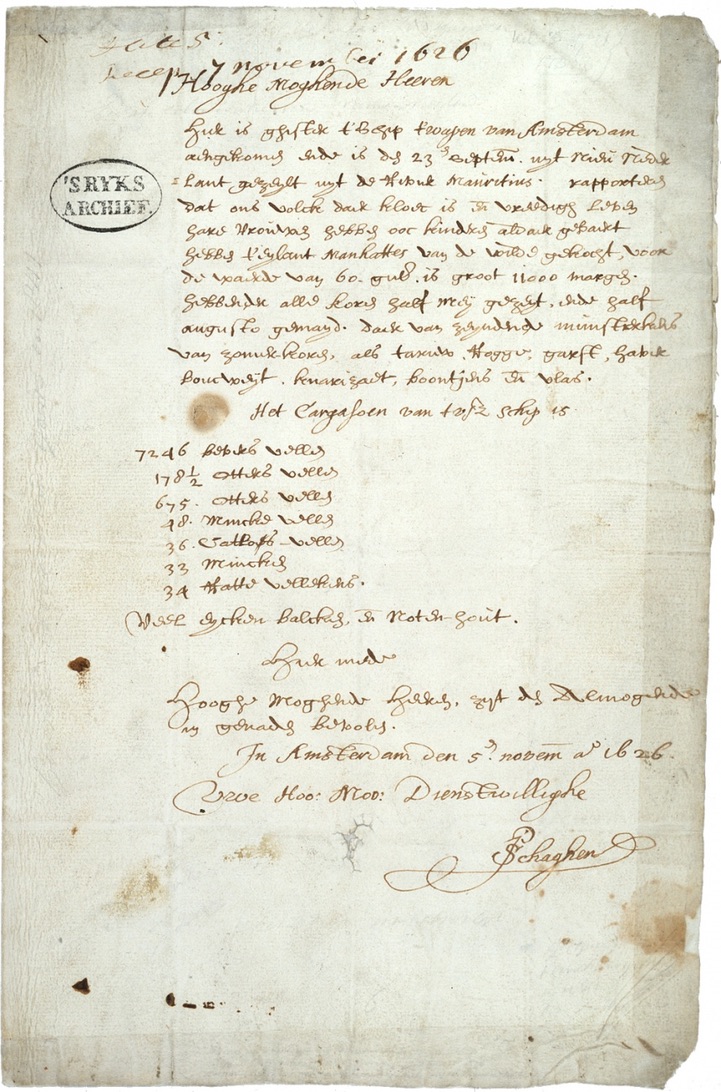 Recep. 7 november 1626
Hooghe Moghende Heeren
Hier is ghister t'Schip t'wapen van Amsterdam
aengekomen ende is den 23en septem. uyt Nieu Neder
lant gezeylt uyt de Rivier Mauritius. rapporteren
dat ons volck daer kloec is en vreedigh leven
hare Vrouwen hebben ooc kinders aldaer gebaert
hebben t'eylant Manhattes van de wilde gekocht, voor
de waerde van 60. guld. is groot 11000 morgen.
hebbende alle koren half Mey gezeyt, ende half
augusto gemayd. daer van zeyndende munsterkens
van zomerkoren, als taruw, Rogge, garst, haver
boucweyt, knarizaet, boontjens en vlas.
Het Cargasoen van tvsz Schip is
7246 bevers vellen
178½ otters vellen
675. otters vellen
48. Mincke vellen
36. Catloes vellen
33 Mincken
34 Ratte vellekens.
Veel eycken balcken, en Noten-hout.
Hier mede
Hooghe Moghende Heeren, zyt den Almogende
in genaden bevolen.
In Amsterdam den 5en. novem ao 1626.
Uwe Hoo: Moo: Dienstwillighe
P Schaghen
'S RYKS
ARCHIEF.